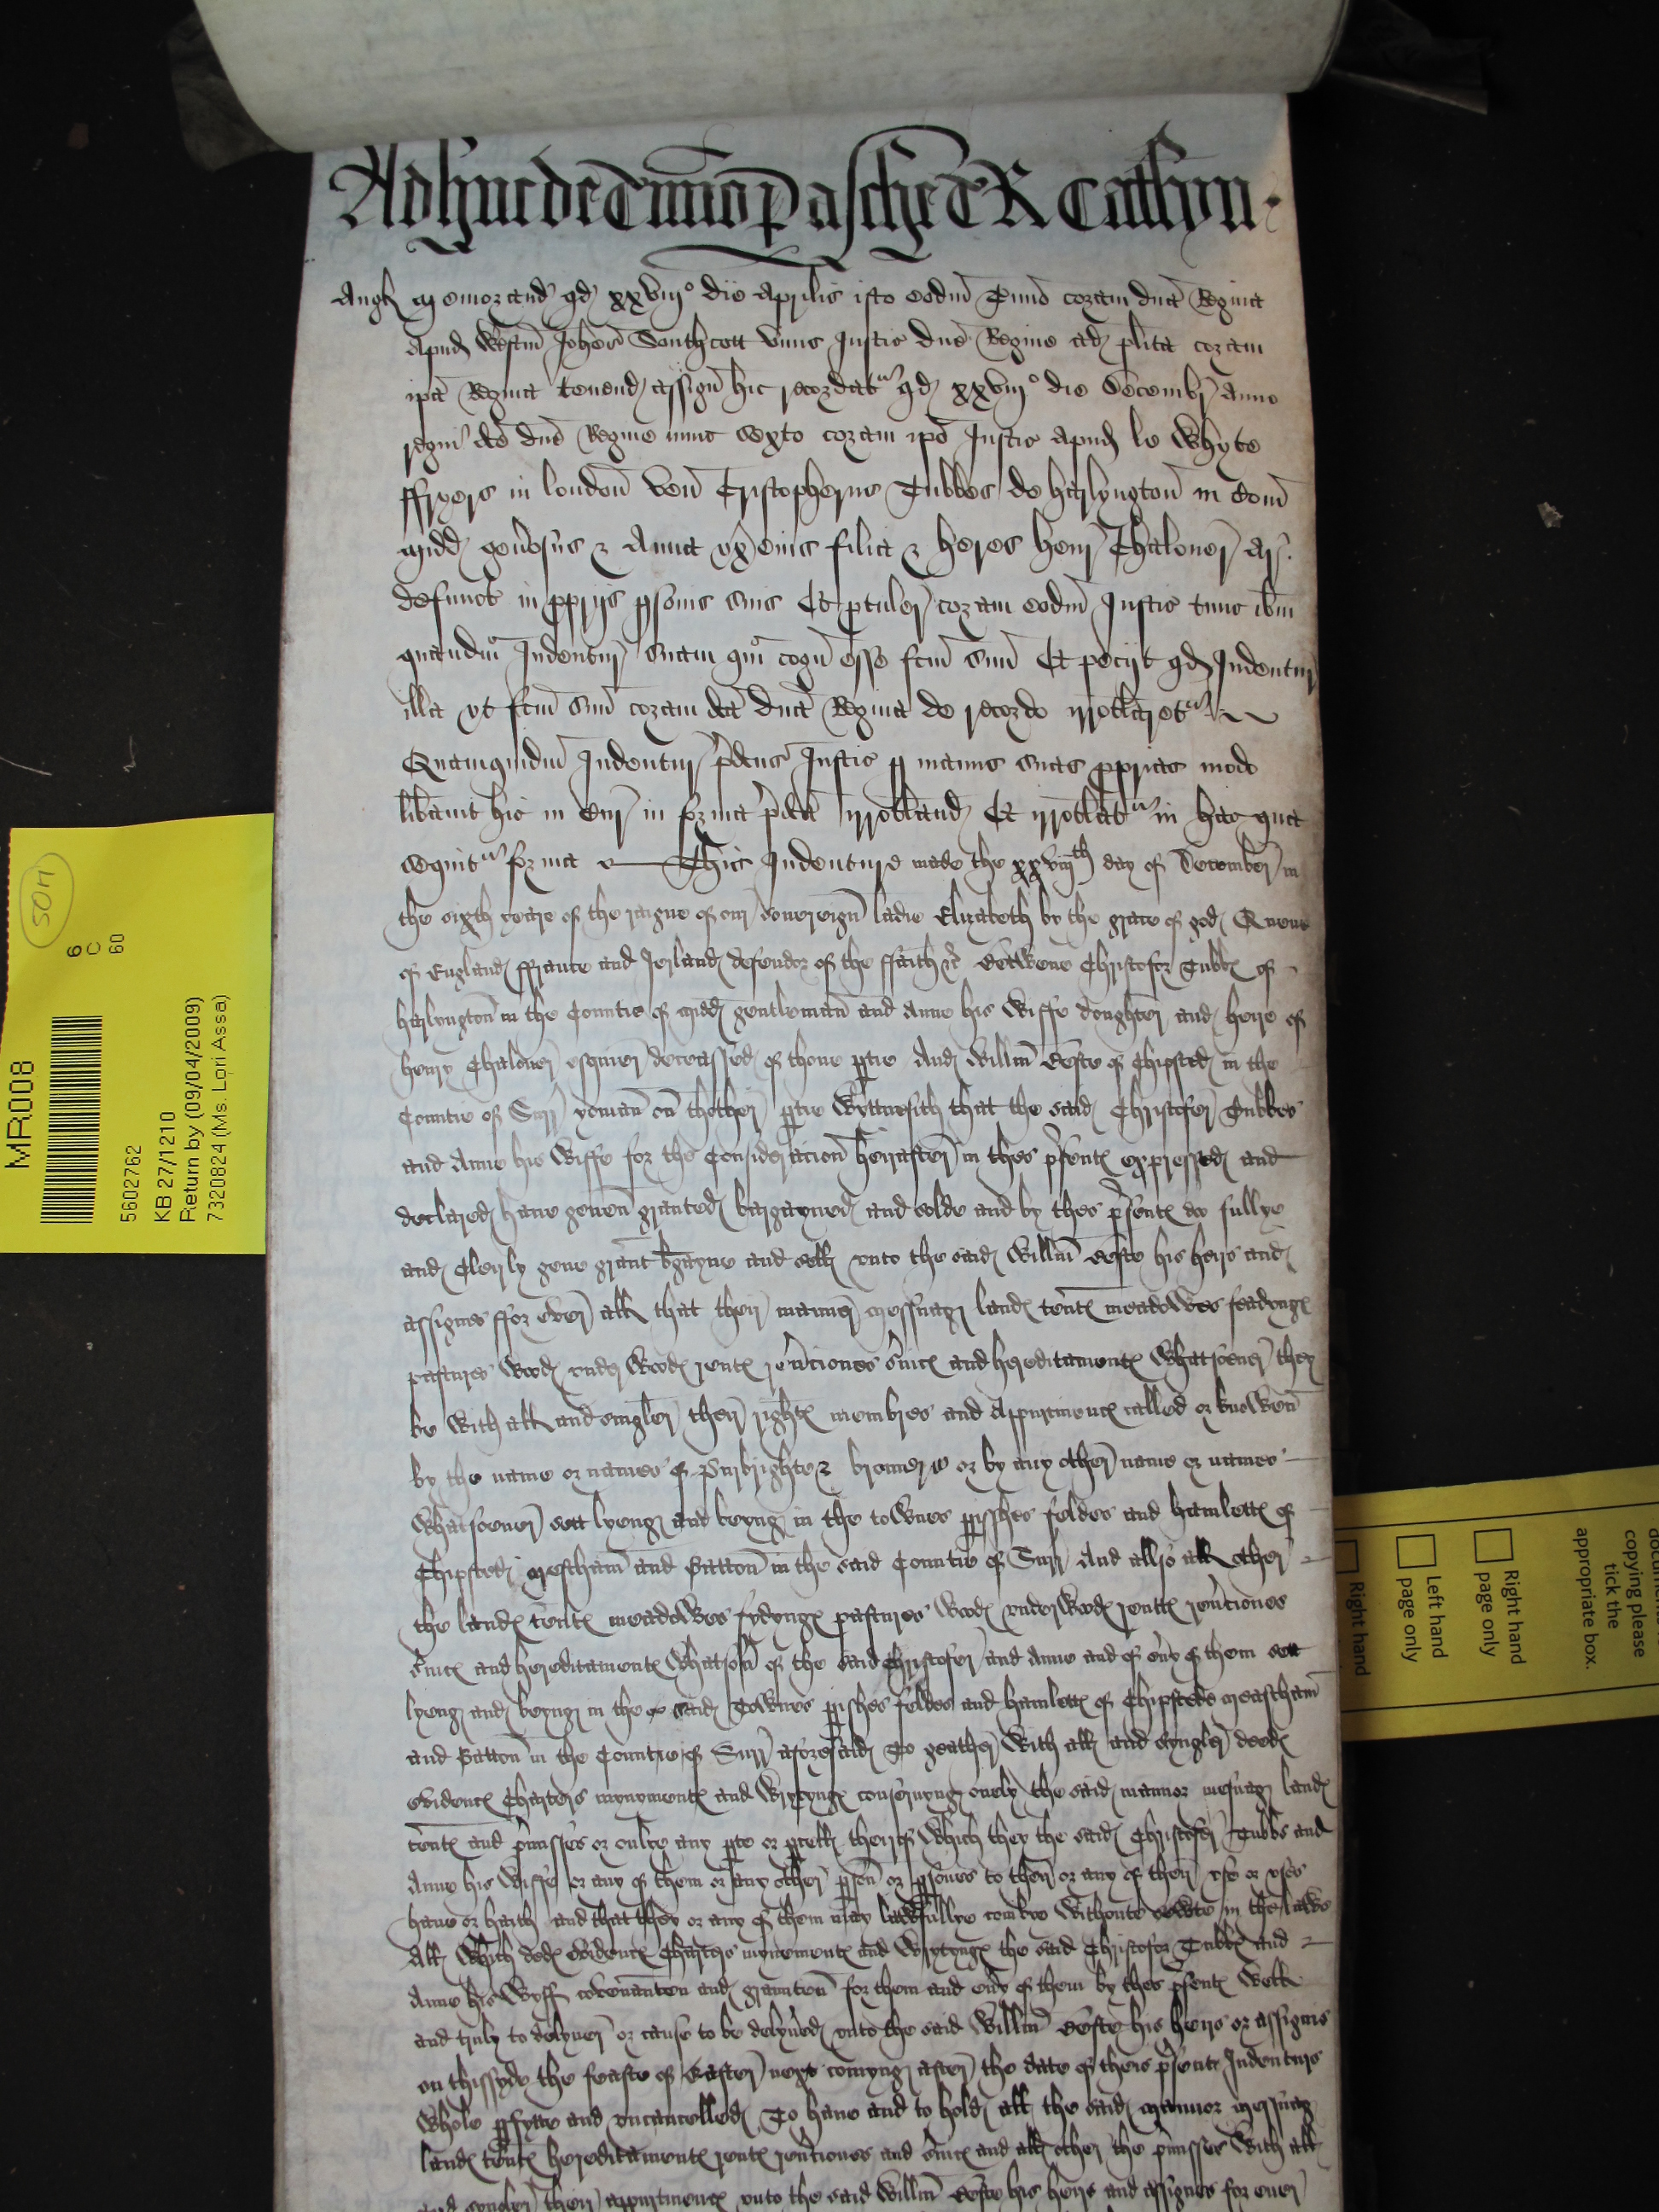 Adhuc de Termino Pasche R Catlyn
Angl Memorand qd xxviij° die Aprilis isto eodm Termino coram dna Regina
apud Westm Johes Southcott unus Justic dne Regine ad plita coram
ipa Regina tenend assign hic recordatr qd xxviij° die Decembr Anno
regni dce dne Regine nunc sexto coram ipo Justic apud le Whyte
ffryers in london ven Cristopherus Tubbes de harlyngton in Com
Midd generosus & Anna ux eius filia & heres henr Chaloner ar
defunct in pprijs psonis suis Et ptuler coram eodm Justic tunc ibm
quandm Indentur suam qm cogn esse fcm suu Et pecijt qd Indentur
illa ut fcm suu coram dca dna Regina de recordo irrotlaretr
Quamquidm Indentur pdcus Justic p manus suas pprias modo
libavit hic in Cur in forma pdca irrotland Et irrotlatr in hac que
sequitr forma This Indenture made the xxviijth day of December in
the sixth yeare of the raigne of our Sovereign ladie Elizabeth by the grace of god Quene
of England ffraunce and Ierland defendor of the ffaith &c Betwene Christofor Tubbes of
harlyngton in the Countie of Midd gentleman and Anne his Wiffe doughter and heire of
henry Chaloner esquier deceassed of thone ptie And Willm Beste of Chipsted in the
Countie of Surr yoman on thother ptie Wyttnesith that the said Christofer Tubbes
and Anne his Wiffe for the Consideracion herafter in thes psentes expressed and
declared have geven graunted bargayned and solde and by thes psentes do fullye
and Clerly geve graunt bgayne and sell unto the said Willm Beste his heirs and
assignes ffor ever all that their manner messuage landes tentes meadowes feadynges
pastures woodes under woodes rentes revciones svices and hereditamentes Whatsoever they
be with all and singler their rightes membres and Appurtinences called or knowen
by the name or names of Purbrightes & or by any other name or names
Whatsoever sett lyeng and beyng in the townes pisshes feldes and hamlettes of
Chipsted Mestham and Gatton in the said Countie of Surr And allso all other
the landes tentes meadowes fydynges pastures woodes underwoodes renttes revciones
svices and hereditamentes Whatsoever of the said Christofer and Anne and of evy of them sett
lyeng and beyng in the said Townes pishes feldes and hamlettes of Chipstede Meastham
and Gatton in the Countie of Surr aforesaid To geather With all and syngler deedes
evidences Charters mynymentes and Wrytynges conservyng onely the said mannor mesuage landes
tentes and pmisses or onlye any pte or pcell therof Which they the said Christofer Tubbs and
Anne his Wiffe or any of them or any other pson or psones to their or any of their use or uses
have or haith and that they or any of them may lawfullye com bye Withoute sewte in the lawe
All Which dedes evidences Charters mynementes and Wrytynges the said Christofor Tubbes and
Anne his Wyff covenanten and graunten for them and evy of them by thes psentes Well
and truly to delyver or cause to be delyved unto the said Willm Beste his heirs or assignes
on thissyde the feaste of Easter next comyng after the date of theis psente Indentures
Whole pfytte and uncancelled To have and to hold all the said mannor messuage
landes tentes hereditamentes rentes revciones and svices and all other the pmisses With all
and syngler their appurtinences unto the said Willm Beste his heirs and assignes for ever
MR008
5602762
KB 27/1210
Return by (09/04/2009)
7320824 (Ms. Lori Assa)
6
C
60
copying please
tick the
appropriate box.
Right hand
page only
Left hand
page only
Right hand